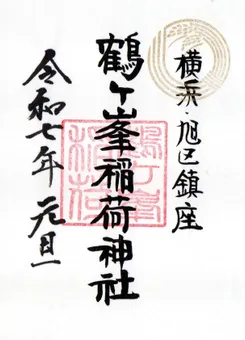 横浜・旭区鎮座
鶴ヶ峯稲荷神社
鶴ヶ峯稲荷
令和七年 元旦